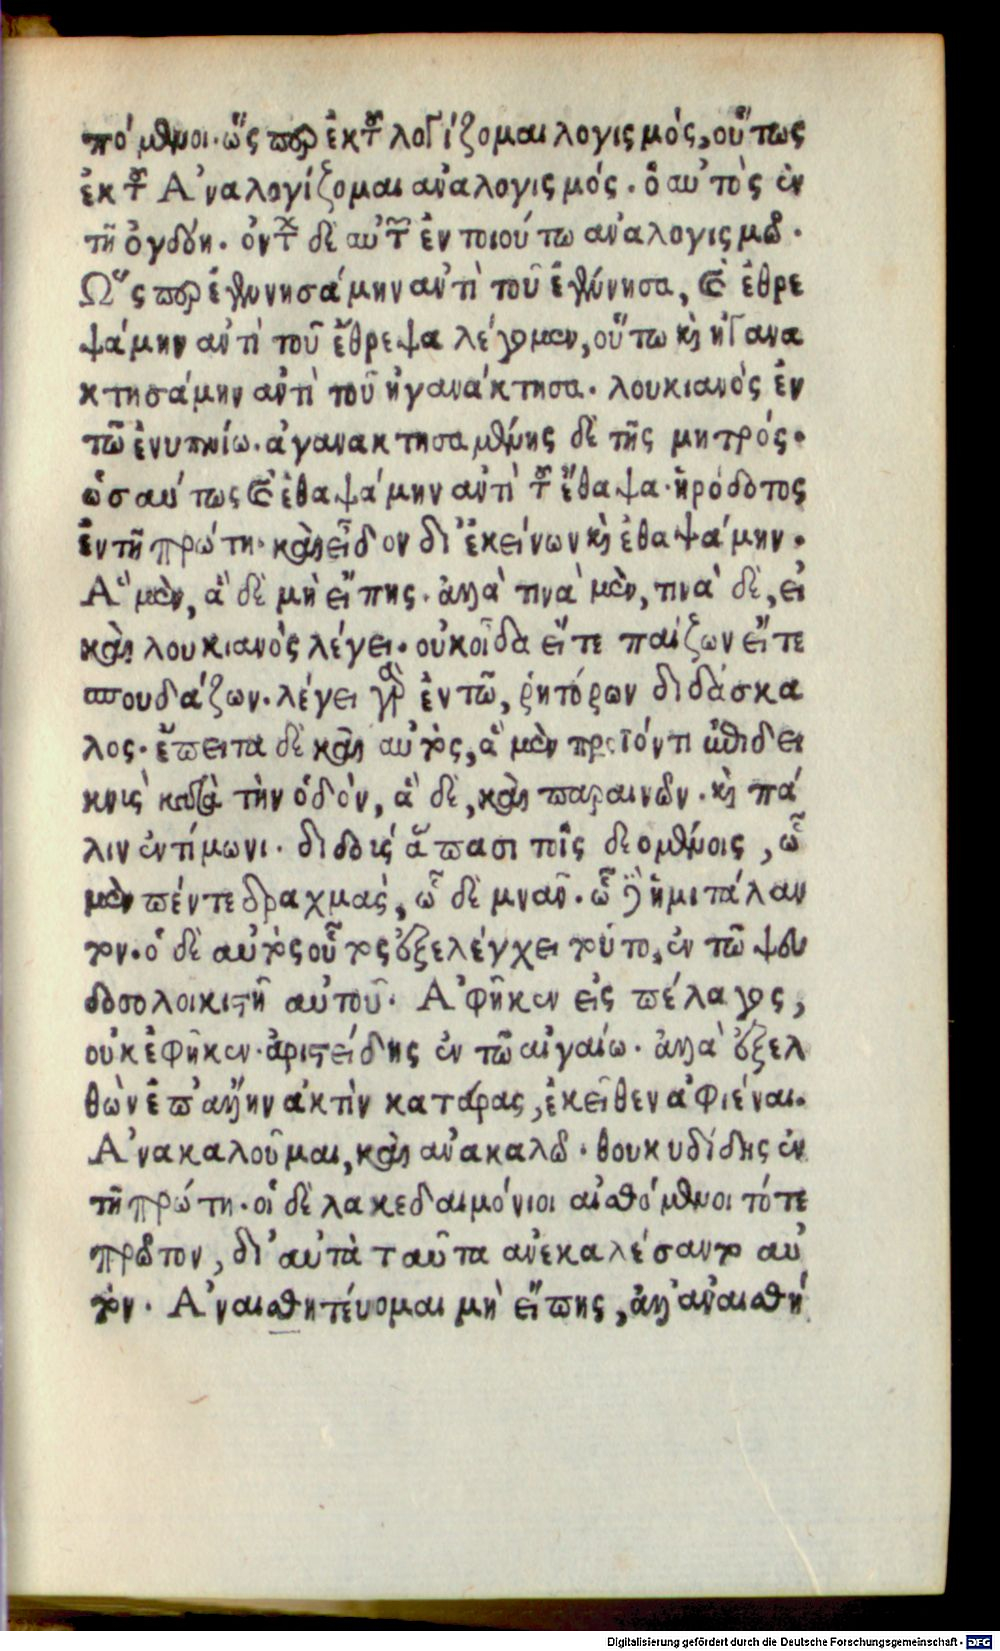 πόμενοι. ὥς περ ἐκ τοῦ λογίζομαι λογισμός, οὕτως
ἐκ τοῦ Ἀναλογίζομαι ἀναλογισμός. ὁ αὐτὸς ἐν
τῇ ὀγδόῃ. δὲ αὐτῶν ἐν ποιούτω ἀναλογισμῶ.
Ὥς περ ἐγεννησάμην ἀντὶ τοῦ ἐγέννησα, καὶ ἐθρε
ψάμην ἀντὶ τοῦ ἔθρεψα λέγομεν, οὕτω καὶ ἠγανα
κτησάμην ἀντὶ τοῦ ἠγανάκτησα. λουκιανὸς ἐν
τῶ ἐνυπνίω. ἀγανακτησαμένης δὲ τῆς μητρός.
ὡσαύτως καὶ ἐθαψάμην ἀντὶ τοῦ ἔθαψα. ἡρόδοτος
ἐν τῇ πρώτη. καὶ εἶδον δι ἐκείνων καὶ ἐθαψάμην.
Ἃ μὲν, ἃ δὲ μὴ εἴπης. ἀλλὰ τινὰ μὲν, τινὰ δὲ, εἰ
καὶ λουκιανὸς λέγει. οὐκ οἶδα εἴτε παίζων εἴτε
σπουδάζων. λέγει γὰρ ἐν τῶ, ῥητόρων διδάσκα
λος. ἔπειτα δὲ καὶ αὐτὸς, ἃ μὲν προϊόντι ἐπιδει
κνὺς κατὰ τὴν ὁδὸν, ἃ δὲ, καὶ παραινῶν. καὶ πά
λιν ἐν τίμωνι. διδοὺς ἅπασι τοῖς δεομένοις, ᾧ
μὲν πέντε δραχμὰς, ᾧ δὲ μνᾶν. ᾧ δὲ ἡμιτάλαν
τον. ὁ δὲ αὐτὸς οὗτος ἐξελέγχει τοῦτο, ἐν τῶ ψευ
δοσολοικιστῇ αὐτοῦ. Ἀφῆκεν εἰς πέλαγος,
οὐκ ἐφῆκεν. ἀριστείδης ἐν τῶ αἰγαίω. ἀλλὰ ἐξελ
θὼν ἐπ ἄλλην ἀκτὴν κατάρας, ἐκεῖθεν ἀφιέναι.
Ἀνακαλοῦμαι, καὶ ἀνακαλῶ. θουκυδίδης ἐν
τῇ πρώτη. οἱ δὲ λακεδαιμόνιοι αἰσθόμενοι τότε
πρῶτον, δι αὐτὰ ταῦτα ἀνεκαλέσαντο αὐ
τόν. Ἀναισθητεύομαι μὴ εἴπης, ἀλλ' ἀναισθή
Digitalisierung gefördert durch die Deutsche Forschungsgemeinschaft - DFG